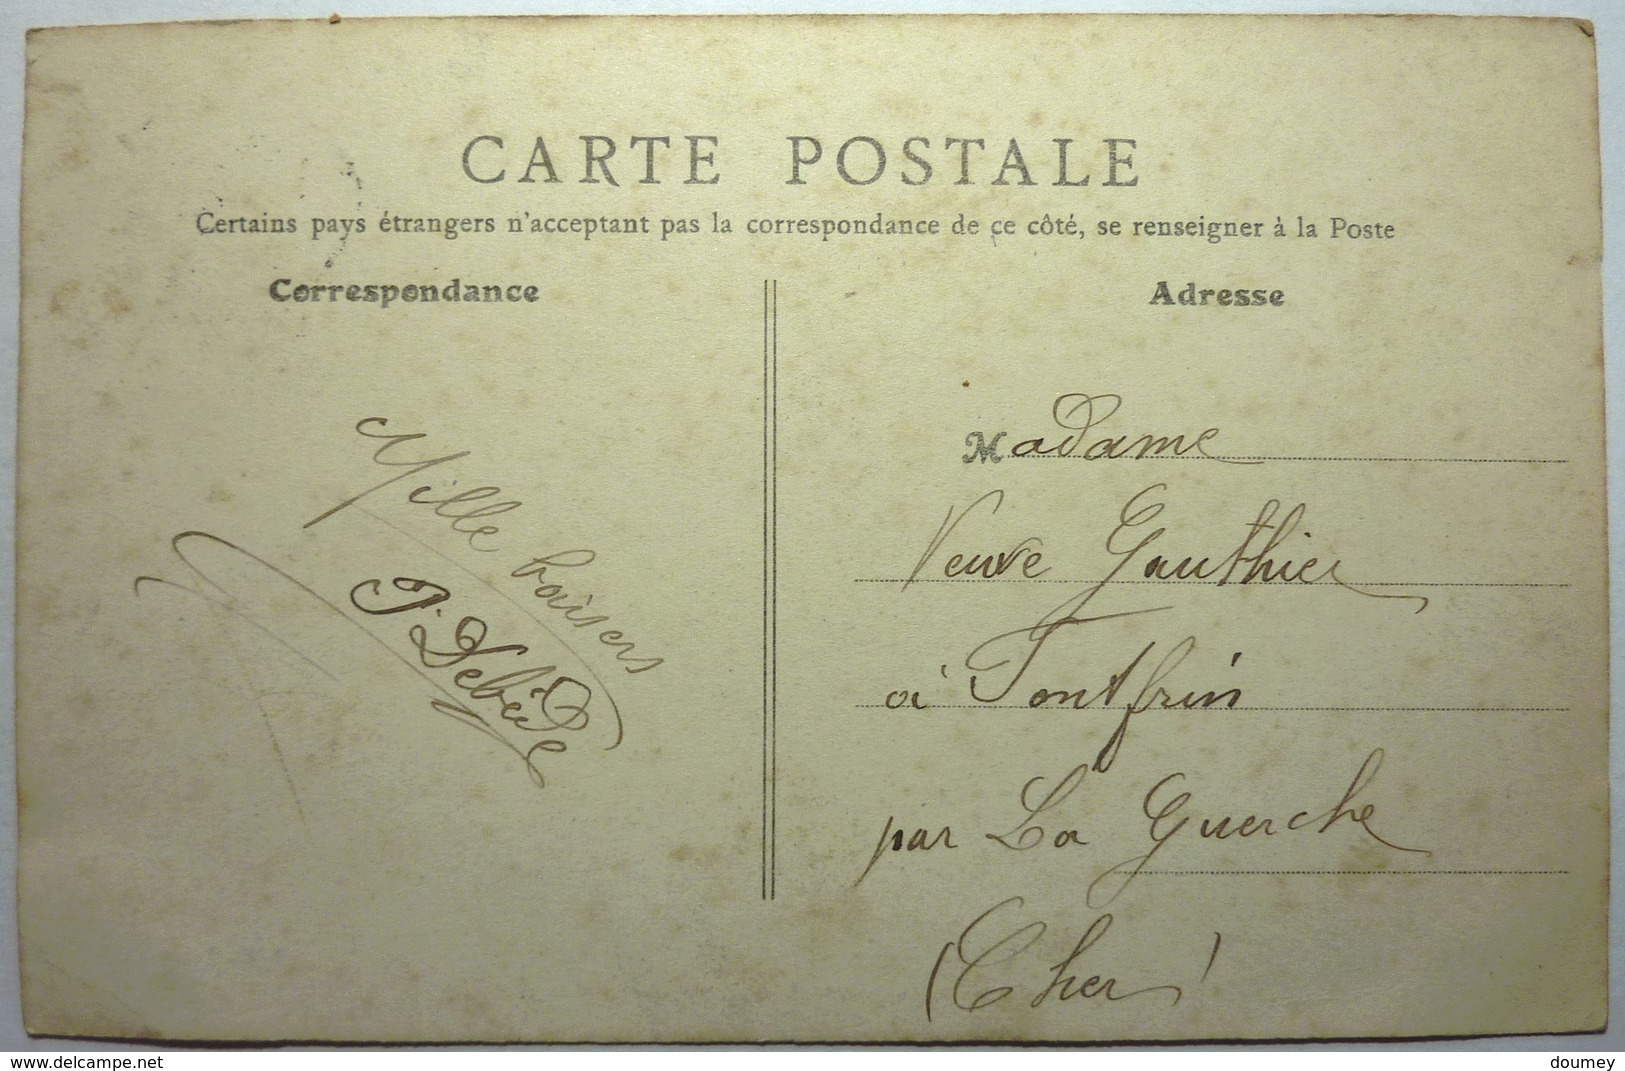 CARTE POSTALE
Certains pays étrangers n'acceptant pas la correspondance de ce côté, se renseigner à la Poste
Correspondance
Mille baisers
Adresse
Madame
Veuve Gauthier
à Fontfrin
par La Guerche
(Cher)
www.delcampe.net
doumey